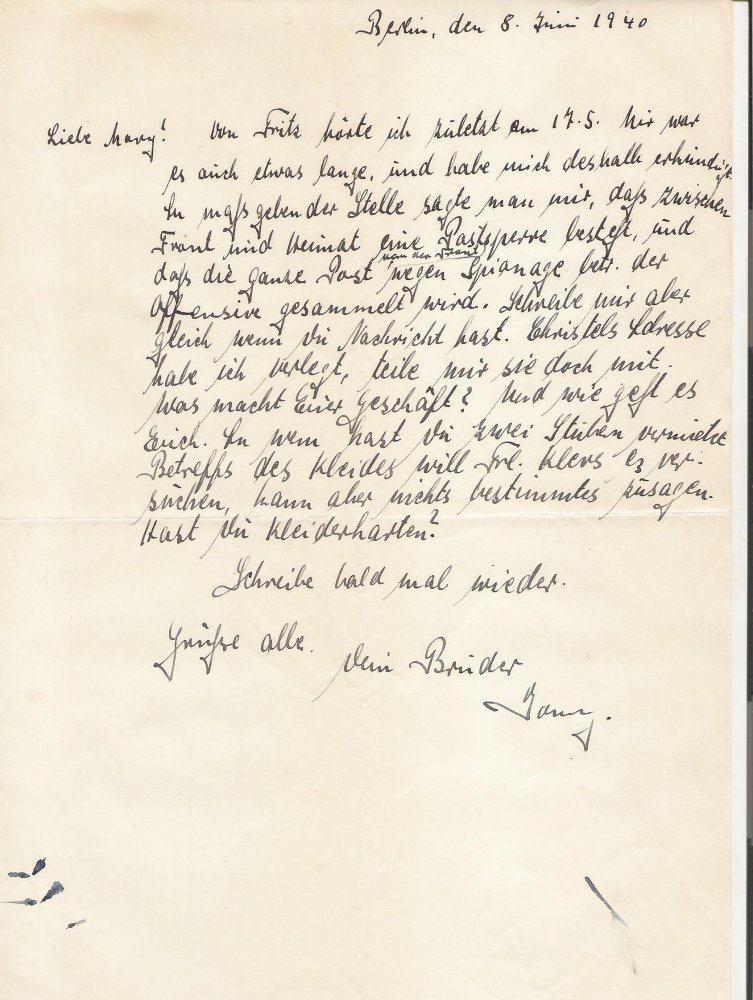 Berlin, den 8. Juni 1940
Liebe Mary! Von Fritz hörte ich zuletzt am 17.5. Mir war
es auch etwas lange, und habe mich deshalb erkundigt.
An maßgebender Stelle sagte man mir, daß zwischen
Front und Heimat eine Postsperre besteht, und
von der Front
daß die ganze Post wegen Spionage betr. der
Offensive gesammelt wird. Schreibe mir aber
gleich wenn Du Nachricht hast. Christels Adresse
habe ich verlegt, teile mir sie doch mit.
Was macht Euer Geschäft? Und wie geht es
Euch. An wem hast Du zwei Stuben vermietet
Betreffs des Kleides will Frl. es ver-
suchen, kann aber nichts bestimmtes zusagen.
Hast Du Kleiderkarten?
Schreibe bald mal wieder.
Grüße alle.
Dein Bruder